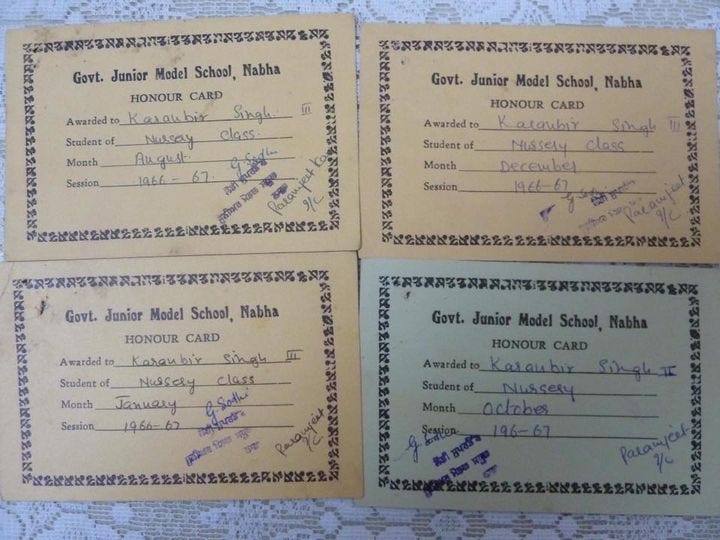 Govt. Junior Model School, Nabha
HONOUR CARD
Awarded to Karanbir Singh III
Student of Nursery Class.
Month August.
Session 1966-67. G Sodhi
Paramjeet
I/C
Govt. Junior Model School, Nabha
HONOUR CARD
Awarded to Karanbir Singh III
Student of Nursery Class
Month December
Session 1966-67
Paramjeet
I/C
Govt. Junior Model School, Nabha
HONOUR CARD
Awarded to Karanbir Singh III
Student of Nursery Class
Month January G Sodhi
Session 1966-67
Paramjeet
I/C
Govt. Junior Model School, Nabha
HONOUR CARD
Awarded to Karanbir Singh II
Student of Nursery
Month October
Session 196-67
Paramjeet
I/C